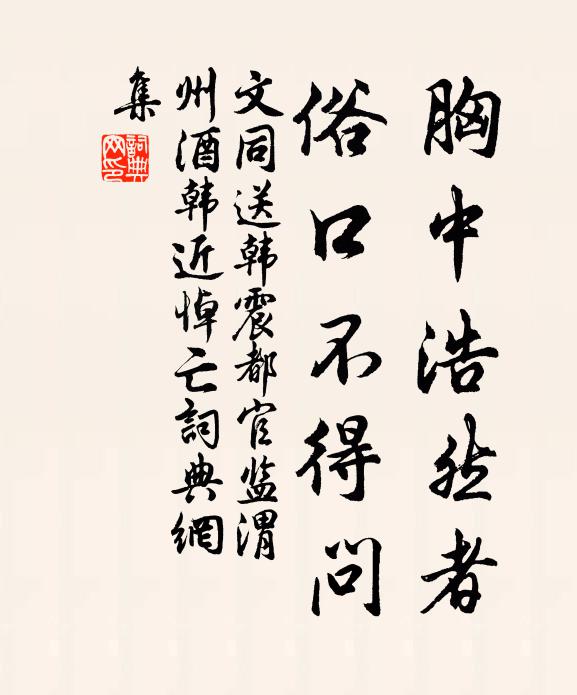 胸中浩然者
俗口不得問
文同送韩震都官监渭
州酒韩近悼亡詞典網
集
詞典
网印